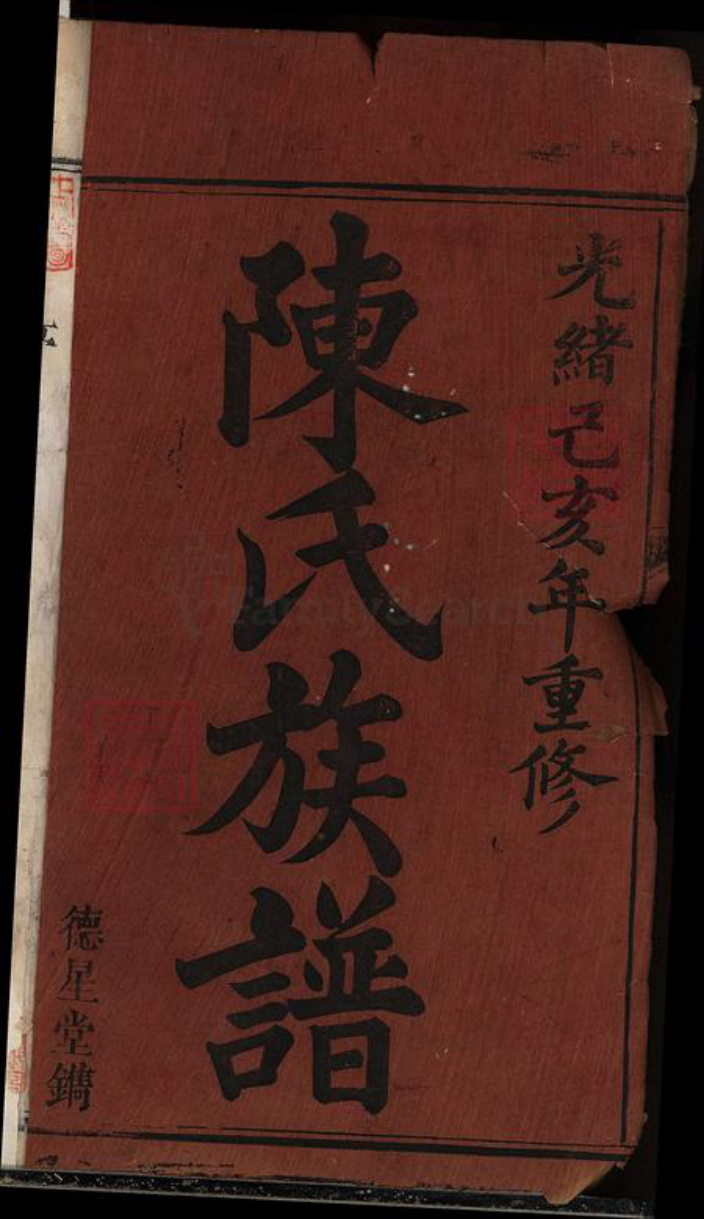 光緒己亥年重修
陳氏族譜
德星堂鐫
FamilySearch